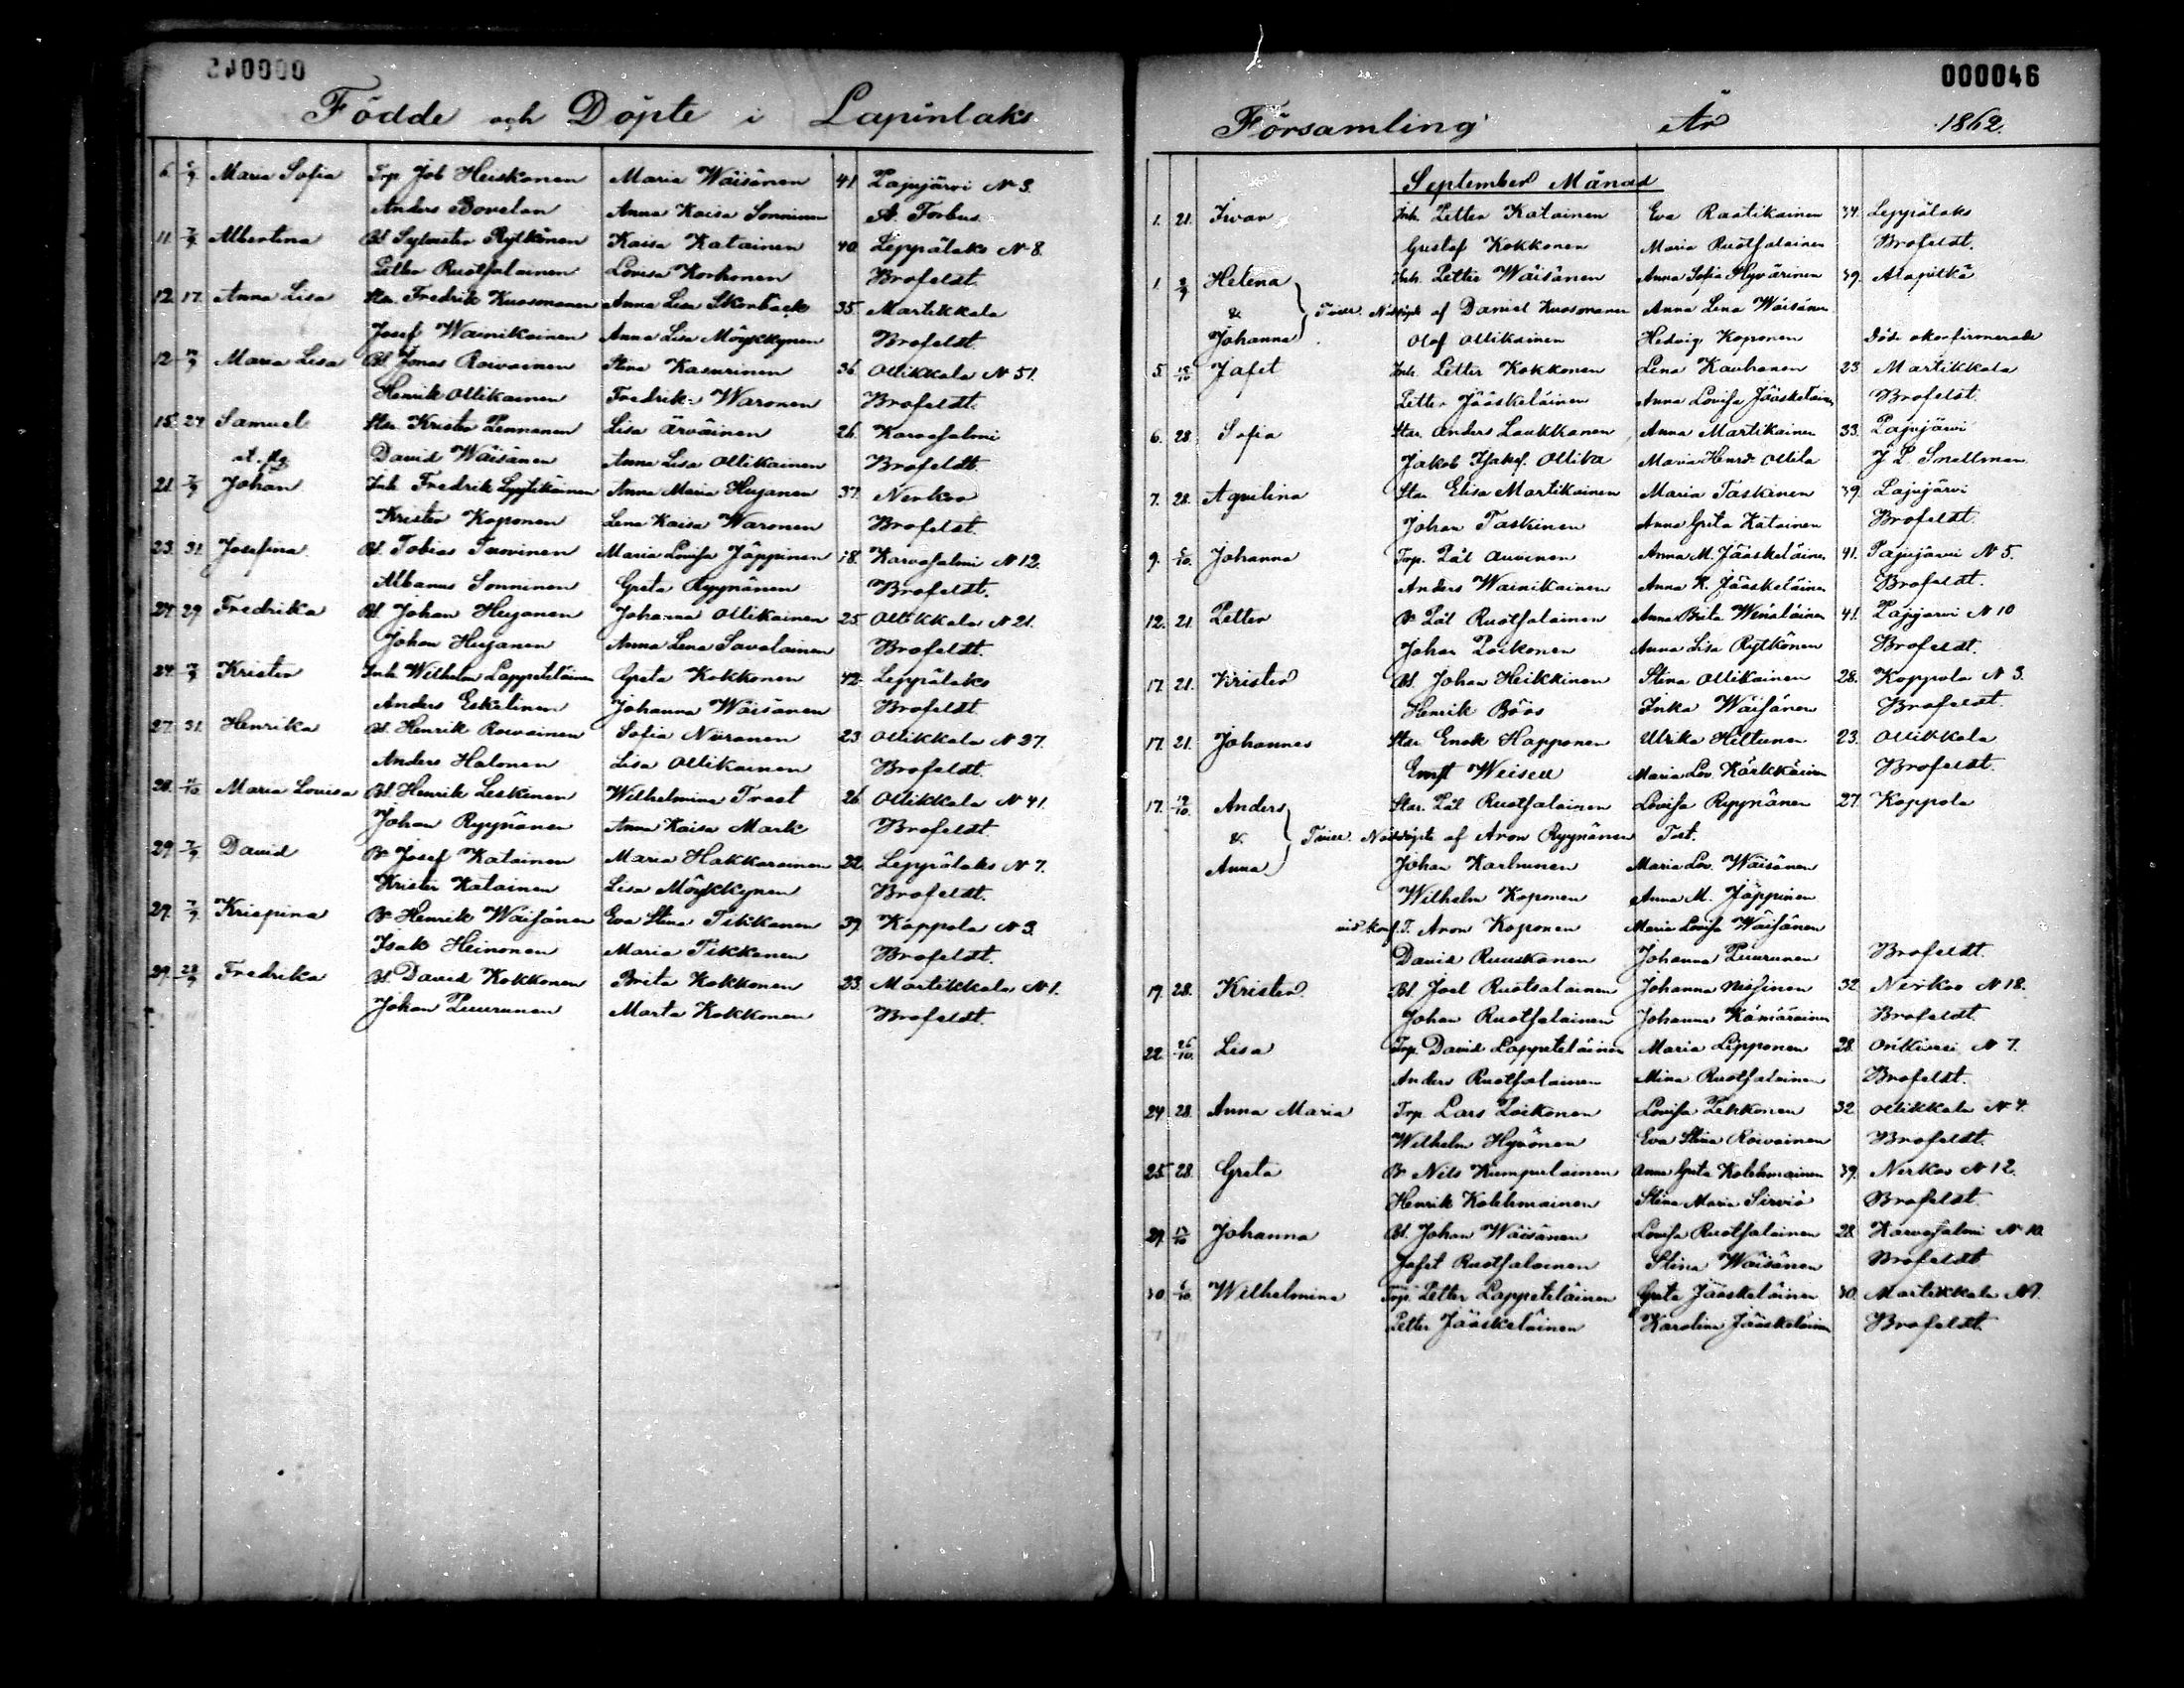 000046
Födde och Döpte i Lapinlaks
6. 5/9. Maria Sofia Trp. Job Huskonen Maria Wäisänen 41 Pajujärvi N 3.
Anders Bovelan Anna Kaisa Sonninen A. Forbus.
11. 7/9 Albertina Bd Sylvester Rytkönen Kaisa Katainen 40. Leppälaks N 8.
Petter Ruotsalainen Lovisa Korhonen Brofeldt.
12. 17. Anna Lisa Star. Fredrik Kuosmanen Anna Lisa Skonbäck 35. Martikkala
Josef Wainikainen Anna Lisa Möykkynen Brofeldt.
12 Maria Lisa Bd Jonas Roivainen Stina Kasurinen 36. Ollikkala N 51.
Henrik Ollikainen Fredrika Waronen Brofeldt.
15. 24 Samuel Star. Krister Pennanen Lisa Ärväinen 26. Karvasalmi
David Wäisänen Anna Lisa Ollikainen Brofeldt.
21. 7/9 Johan Inh. Fredrik Lyytikäinen Anna Maria Hujanen 37. Nerkoo
Krister Koponen Lena Kaisa Waronen Brofeldt.
23. 31. Josefina Bd. Tobias Tuovinen Maria Lovisa Jäppinen 18. Karvasalmi N 12.
Albanus Sonninen Greta Ryynänen Brofeldt.
24. 29. Fredrika Bd. Johan Hujanen Johanna Ollikainen 25. Ollikkala N 21.
Johan Hujanen Anna Lena Savolainen Brofeldt.
24. Krister Inh. Wilhelm Lappeteläinen Greta Kokkonen 42. Leppälaks
Anders Eskelinen Johanna Wäisänen Brofeldt
27. 31. Henrika Bd. Henrik Roivainen Sofia Niiranen 23 Ollikkala N 27.
Anders Halonen Lisa Ollikainen Brofeldt.
28. Maria Lovisa Bd. Henrik Leskinen Wilhelmina Trast 26. Ollikkala N 41.
Johan Ryynänen Anna Kaisa Mark Brofeldt.
29. 7/9. David B. Josef Katainen Maria Hakkarainen 22. Leppälaks N 7.
Krister Katainen Lisa Möykkynen Brofeldt.
29. 7/9. Krispina B. Henrik Wäisänen Eva Stina Tikkanen 39. Koppola N 3.
Isak Heinonen Maria Tikkanen Brofeldt.
29. 28/9 Fredrika Bd. David Kokkonen Brita Kokkonen 23. Martikkala N 1.
Johan Puurunen Marta Kokkonen Brofeldt.
000046
Församling År 1862.
September Månad
1. 21. Iwar Inh. Petter Katainen Eva Raatikainen 34. Leppälaks
Gustaf Kokkonen Maria Ruotsalainen Brofeldt.
1. Helena Inh. Petter Wäisänen Anna Sofia Hyvärinen 39. Alapitkä
& Tvill. Nöddöpte af Daniel Kuosmanen Anna Lena Wäisänen
Johanna Olof Ollikainen Hedvig Koponen Döde okonfirmerade
5. Jafet Inh. Petter Kokkonen Lena Kauhanen 23. Martikkala
Petter Jääskeläinen Anna Lovisa Jääskeläinen Brofeldt.
6. 28. Sofia Star. Anders Laukkanen Anna Martikainen 33. Pajujärvi
Jakob Ollila Maria Henrd. Ollila J. L. Snellman
7. 28. Aquilina Star Elisa Martikainen Maria Taskinen 39. Pajujärvi
Johan Taskinen Anna Greta Katainen Brofeldt.
9. 5/10. Johanna Trp. Pål Auvinen Anna M. Jääskeläinen 41. Pajujärvi N 5.
Anders Wainikainen Anna K. Jääskeläinen Brofeldt.
12. 21 Petter B. Pål Ruotsalainen Anna Brita Wenäläinen 41. Pajujärvi N 10
Johan Poikonen Anna Lisa Rytkönen Brofeldt.
17. 21. Krister Bd. Johan Heikkinen Stina Ollikainen 28. Koppola N 3.
Henrik Böös Inka Wäisänen Brofeldt.
17. 21. Johannes Star Enok Happonen Ulrika Hiltunen 23. Ollikkala
Ernst Maria Lov. Kärkkäinen Brofeldt.
17. Anders Star. Pål Ruotsalainen Lovisa Ryynänen 27. Koppola
& Tvill. Nöddöpte af Aron Ryynänen Test.
Anna Johan Karhunen Maria Lov. Wäisänen
Wilhelm Koponen Anna M. Jäppinen
vid konf. T. Aron Koponen Maria Lovisa Wäisänen
David Ruuskanen Johanna Puurunen Brofeldt.
19. 28. Krister Bd. Joel Ruotsalainen Johanna Nissinen 32 Nerkoo N 18.
Johan Ruotsalainen Johanna Kämäräinen Brofeldt.
22. 26/10. Lisa Trp. David Lappeteläinen Maria Lipponen 28. Onkivesi N 7.
Anders Ruotsalainen Mina Ruotsalainen Brofeldt.
24 28. Anna Maria Trp. Lars Poikonen Lovisa Pekkonen 32 Ollikkala N 4.
Wilhelm Hyvönen Eva Stina Roivainen Brofeldt.
25. 28. Greta B. Nils Kumpulainen Anna Greta Kolehmainen 39. Nerkoo N 12.
Henrik Kolehmainen Stina Maria Sirviö Brofeldt.
29. Johanna Bd. Johan Wäisänen Lovisa Ruotsalainen 28. Karvasalmi N 10.
Jafet Ruotsalainen Stina Wäisänen Brofeldt
30. 6/10. Wilhelmina Trp. Petter Lappeteläinen Greta Jääskeläinen 30. Martikkala N 7.
Petter Jääskeläinen Karolina Jääskeläinen Brofeldt.